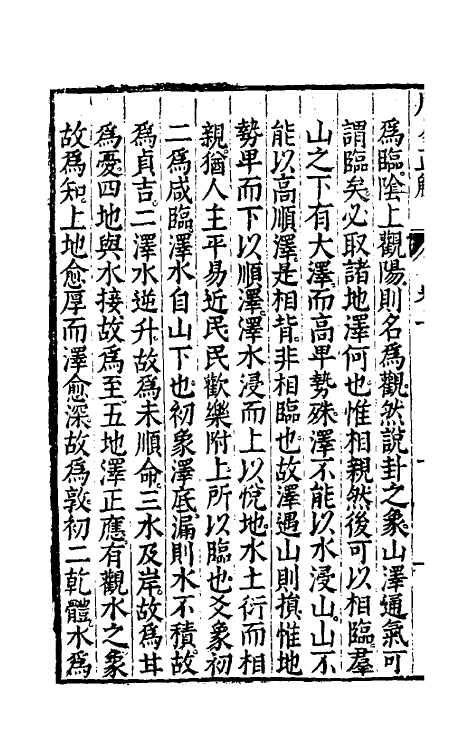 為臨陰上觀陽則名為觀然說卦之象山澤通氣可
謂臨矣必取諸地澤何也惟相親然後可以相臨羣
山之下有大澤而高卑勢殊澤不能以水浸山山不
能以高順澤是相背非相臨也故澤遇山則損惟地
勢卑而下以順澤澤水浸而上以悅地水土衍而相
親猶人主平易近民民歡樂附上所以臨也爻象初
二為咸臨澤水自山下也初象澤底漏則水不積故
為貞吉二澤水逆升故為未順命三水及岸故為甘
為憂四地與水接故為至五地澤正應有觀水之象
故為知上地愈厚而澤愈深故為敦初二乾體水為